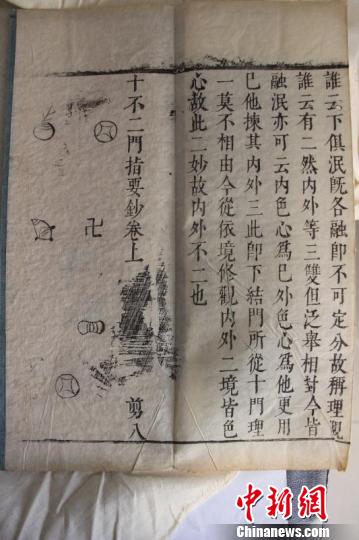 誰云下俱泯旣各融卽不可定分故稱理觀
誰云有二然内外等三雙但泛舉相對今皆
融泯亦可云内色心爲巳外色心爲他更用
巳他揀其内外三此卽下結門所從十門理
一莫不相由今從依境修觀内外二境皆色
心故此二妙故内外不二也
十不二門指要鈔卷上
剪八
卍
中新網
Chinanews.com